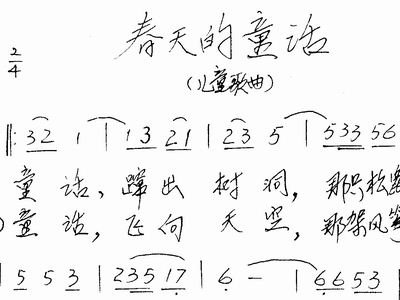 春天的童话
2/4
(儿童歌曲)
‖: 32 1 | 13 21 | 23 5 | 533 56
童话，蹿出树洞，那只松
)童话，飞向天空，那架风筝
| 5 5 3 | 235 17 | 6 - | 66 53 |